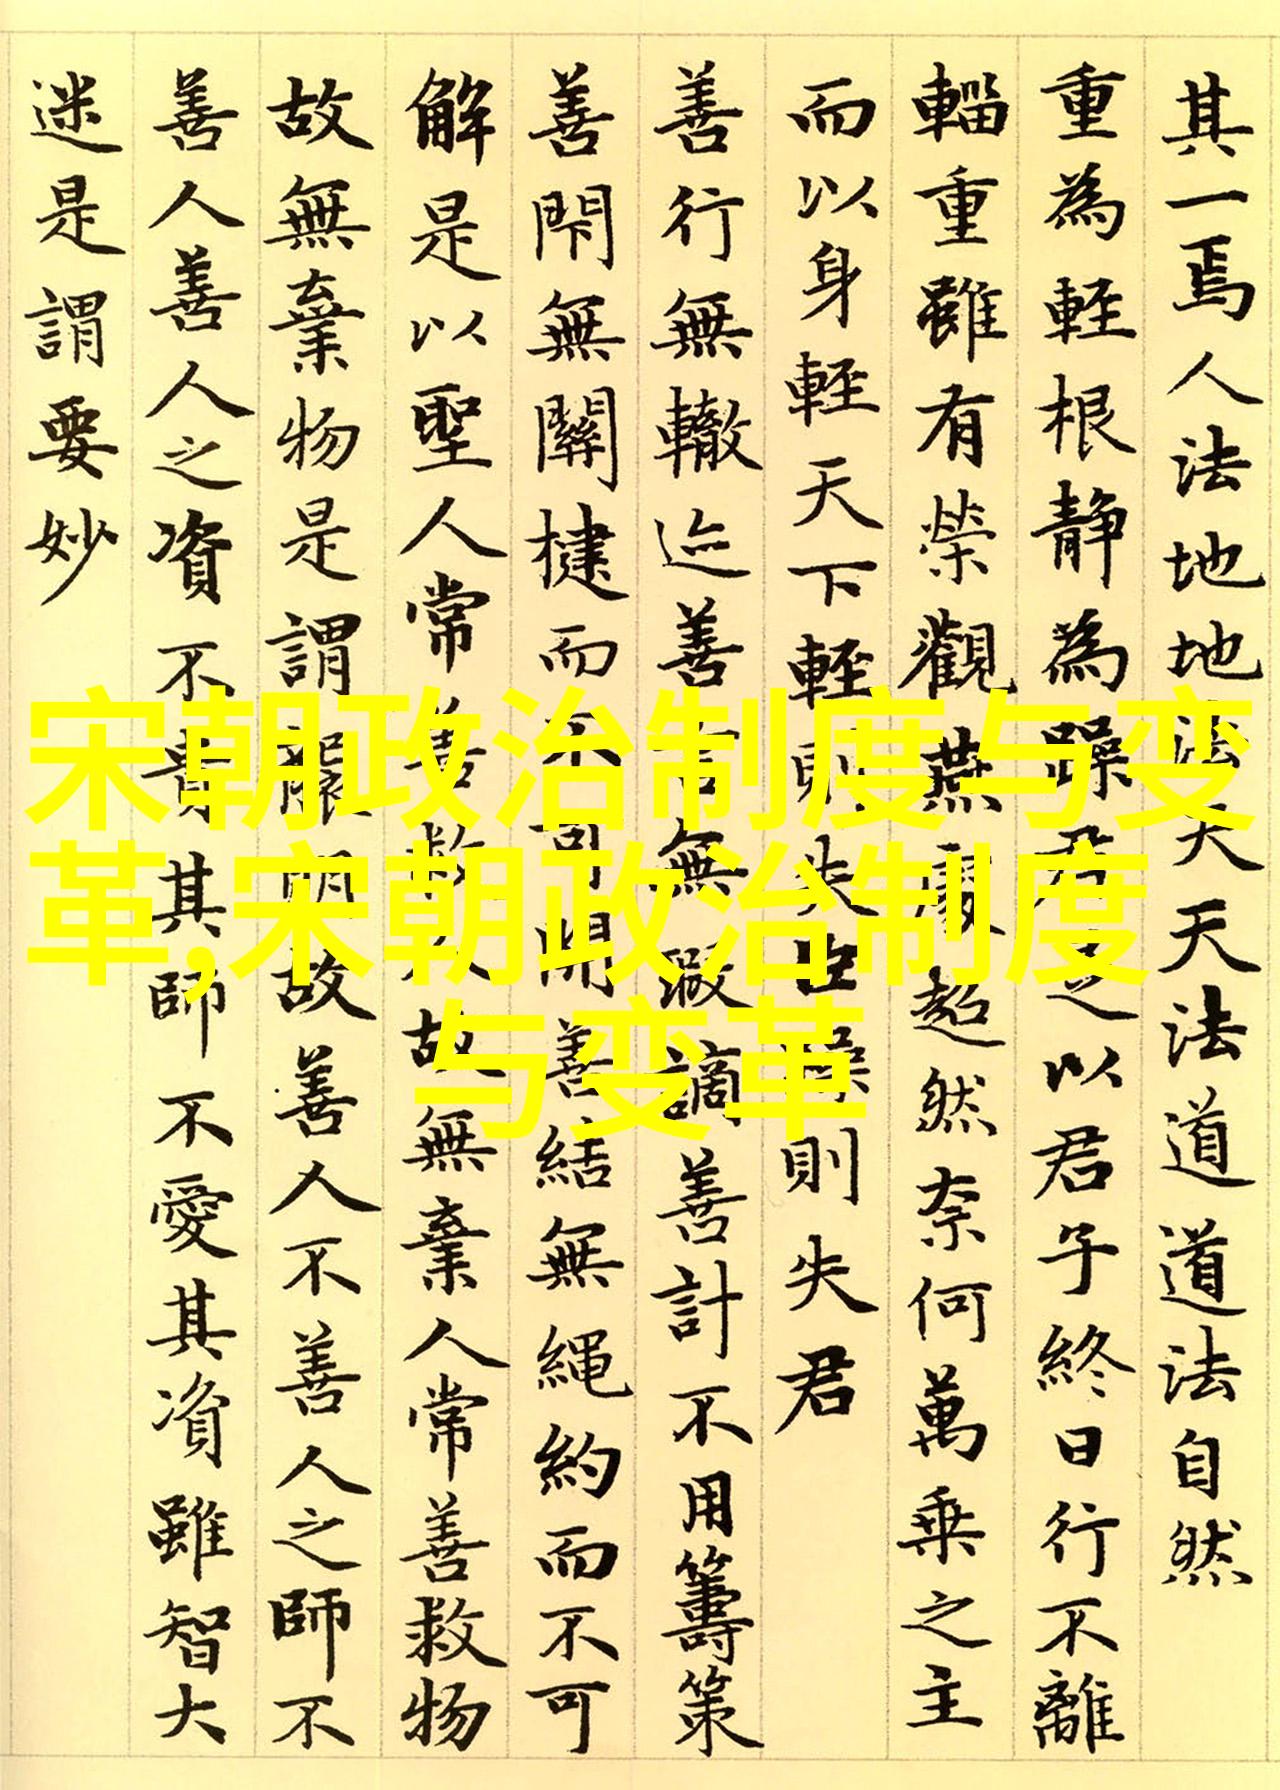 其一焉人法地地法天天法道道法自然
重為輕根静為躁君是以君子終日行不離
輜重雖有榮觀燕處超然奈何萬乗之主
而以身輕天下輕則失臣躁則失君
善行無轍迹善言無瑕謫善計不用籌策
善閇無關楗而不可開善結無繩約而不可
解是以聖人常善救人故無棄人常善救物
故無棄物是謂襲明故善人不善人之師不
善人善人之資不貴其師不愛其資雖智大
迷是謂要妙
宋朝政治制度与变
革,宋朝政治制度
与变革